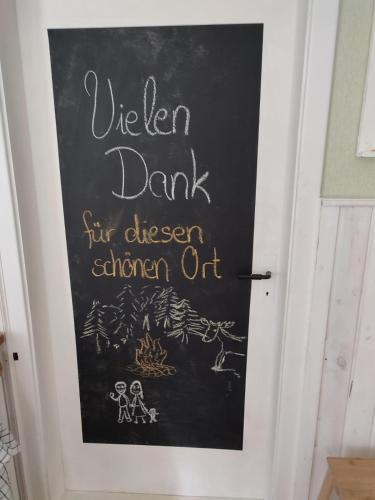 Vielen
Dank
für diesen
schönen Ort